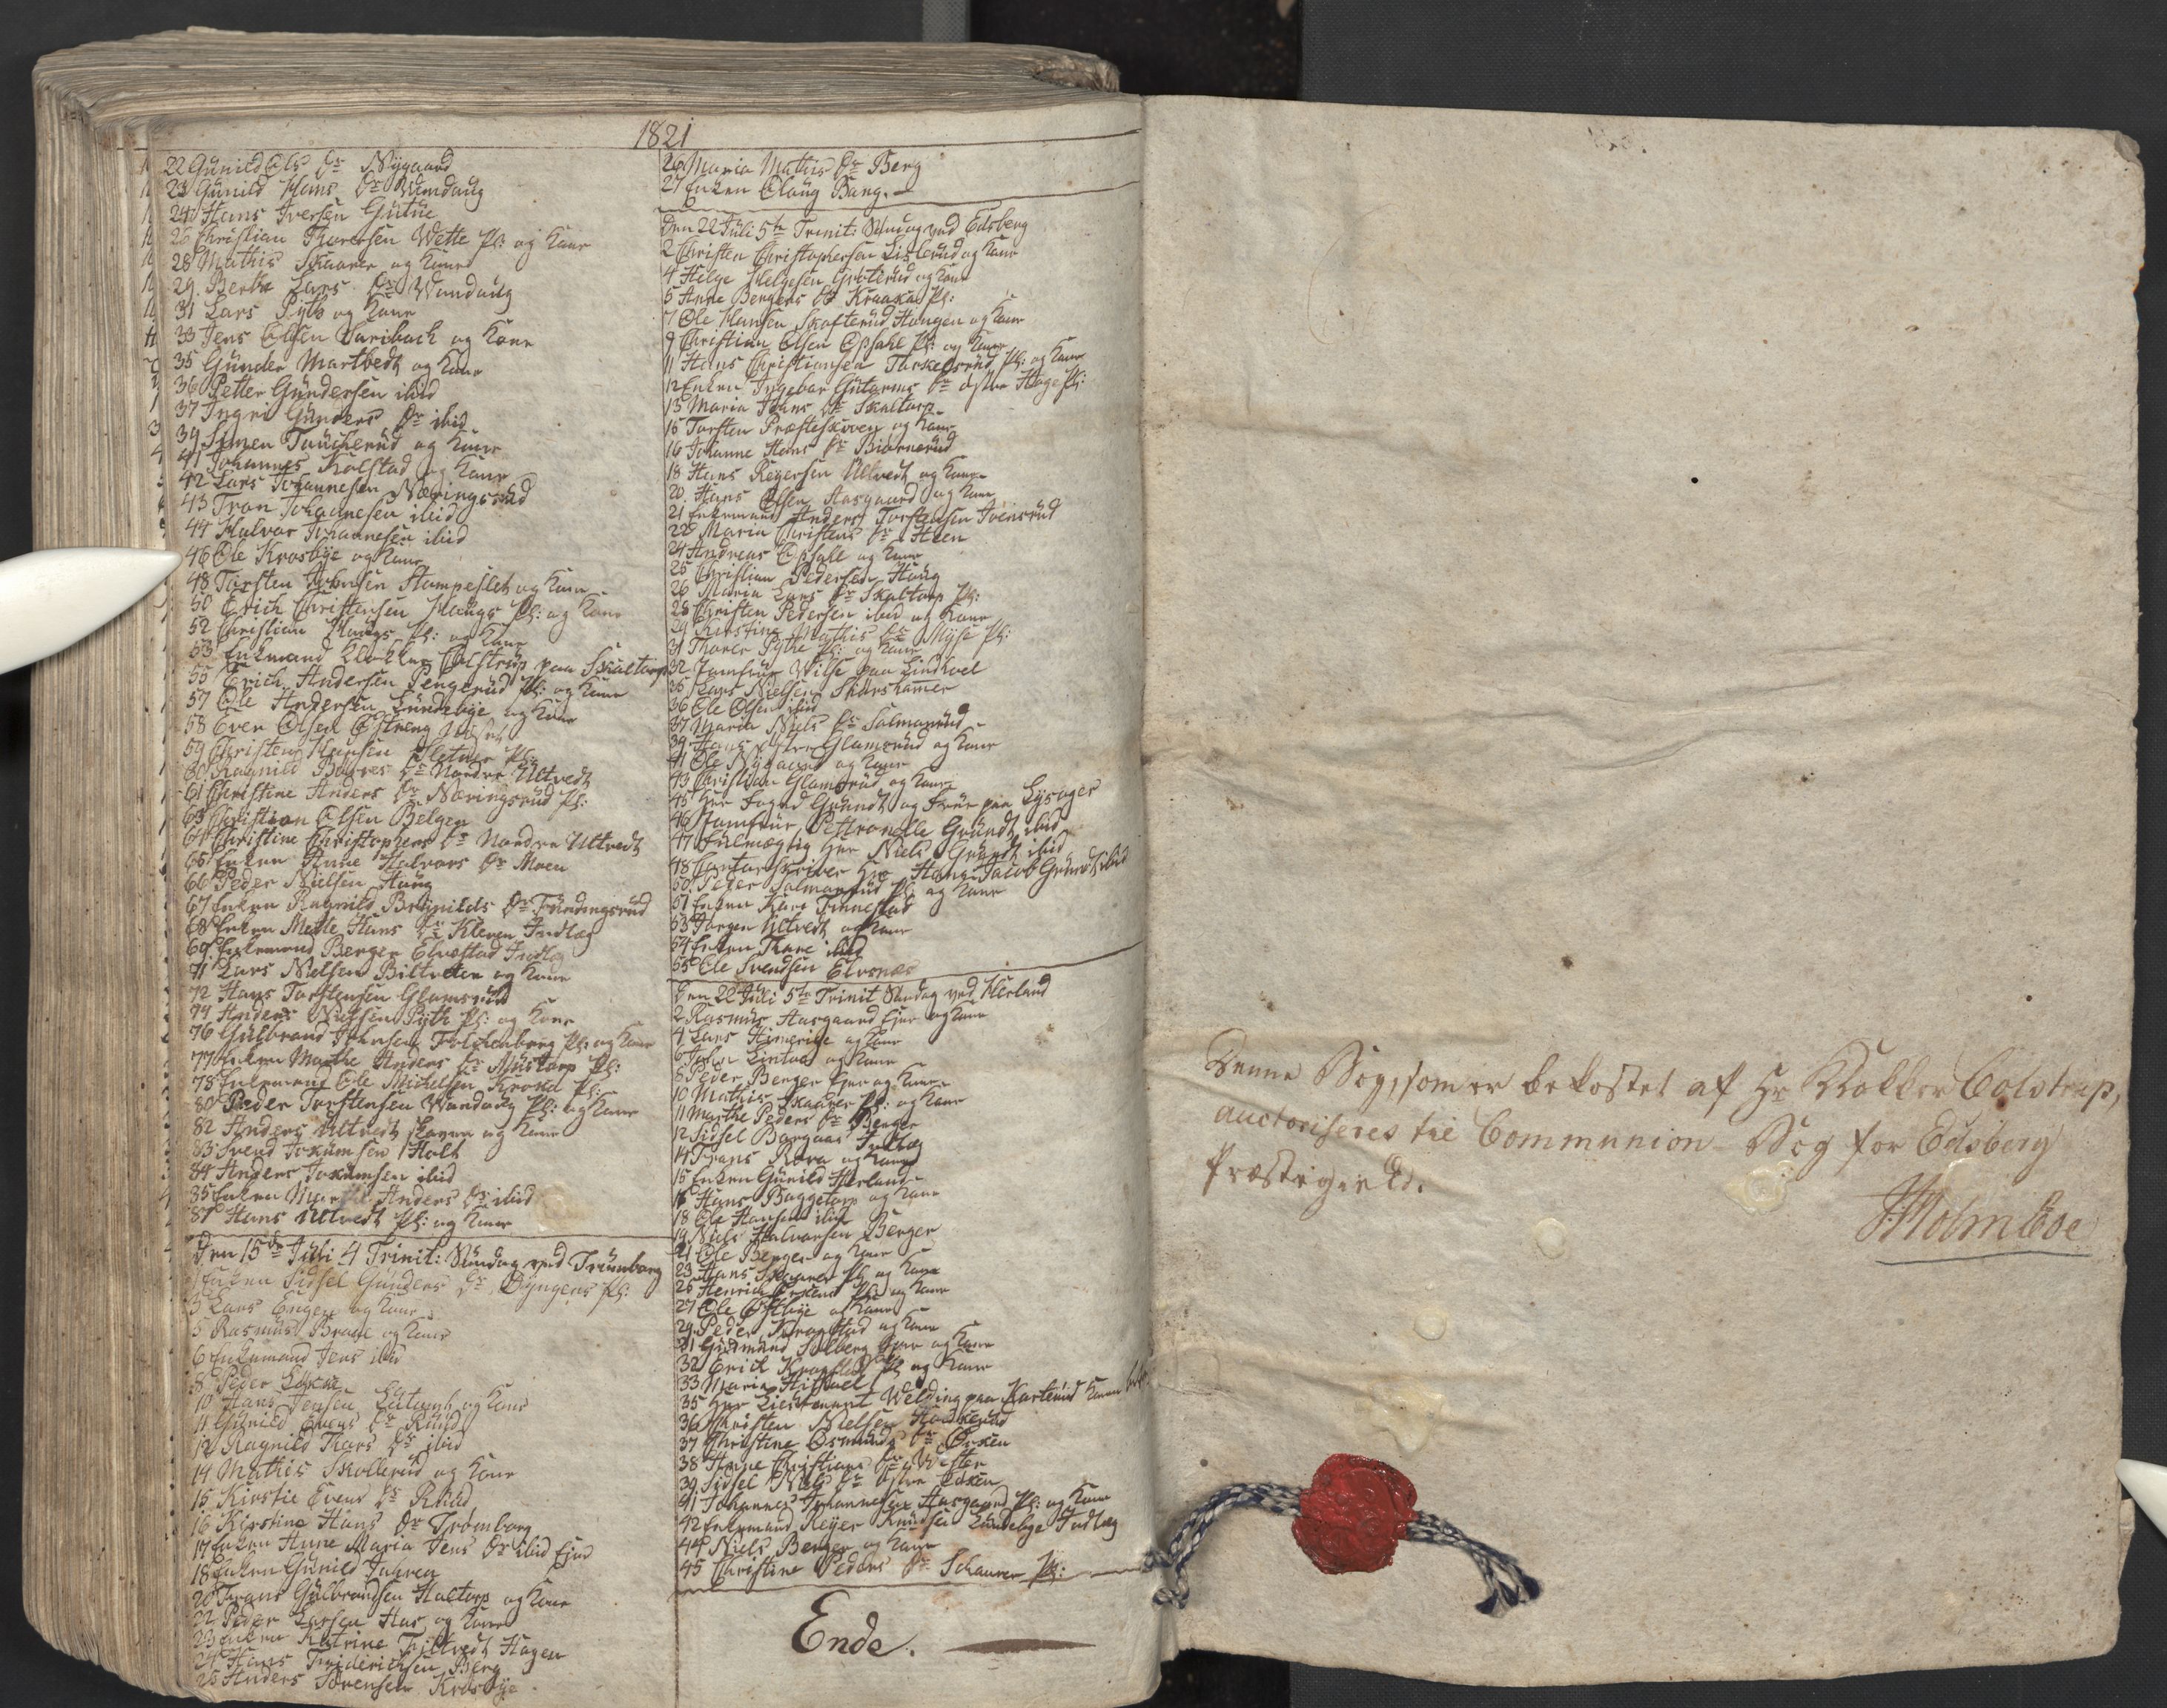 1821
22 Gunild Ols Dr Nygaard
23 Gunild Hans Dr Wundaug
24 Hans Iversen Gutue
26 Christian Thoresen Wette Pl: og Kone
28 Mathis Skaarer og Kone
29. Berthe Lars Dr Wundaug
31 Lars Pyth og Kone
33 Jens Olsen Saribach og Kone
35 Gunder Martvedt og Kone
36 Petter Gundersen ibid
37 Ingri Gunders Dr ibid
39 Simen Taucherud og Kone
41 Johannes Kolstad og Kone
42 Lars Johannesen Næringsrud
43 Tron Johannesen ibid
44 Halvor Johannesen ibid
46 Ole Krosbye og Kone
48 Torsten Johnsen Stampeslet og Kone
50 Erich Christensen Haugs Pl: og Kone
52 Christian Haugs Pl: og Kone
53 Enkemand Klokker Colstrup paa Skaltorp
55 Erich Andersen Pengerud Pl: og Kone
57 Ole Andersen Lundebye og Kone
58 Even Olsen Østreng
59 Christen Hansen Sletner Pl:
60 Ragnild Børres Dr Nordre Ultvedt
61 Christine Anders Dr Næringsrud Pl:
63 Christian Olsen Belgen
64 Christine Christophers Dr Nordre Ultvedt
65 Enken Anne Halvors Dr Moen
66 Peder Nielsen Haug
67 Enken Ragnild Brynilds Dr Fundingsrud
68 Enken Mette Hans Dr Kleven Indlæg
69 Enkemand Berger Elvestad Indlæg
71 Lars Nielsen Biltvetter og Kone
72 Hans Torstensen Glamsrud
74 Anders Nielsen Pyth Pl: og Kone
76 Gulbrand Johnsen Folchenborg Pl: og Kone
77 Enken Marthe Anders Dr Mustorp Pl:
78 Enkemand Ole Michelsen Kroka Pl:
80 Peder Torstensen Wundaug Pl: og Kone
82 Anders Ultvedt Skaren og Kone
83 Svend Jokumsen Holt
84 Anders Jokumsen ibid
85 Enken Marthe Anders Dr ibid
87 Hans Ultvedt Pl: og Kone
Den 15de Juli 4 Trinit: Søndag ved Trømborg
Enken Sidsel Gunders Dr Dyngens Pl:
3 Lars Engen og Kone
5 Rasmus Braae og Kone
6 Enkemand Jens ibid
8 Peder
10 Hans Jensen og Kone
11 Gunild Evens Dr Ruud
12 Ragnild Thors Dr ibid
14 Mathis Skollerud og Kone
15 Kirstie Evens Dr Ruud
16 Kirstine Hans Dr Trømborg
17 Enken Anne Maria Jens Dr ibid Ejer
18 Enken Gunild Jahren
20 Frans Gulbrandsen Haltorp og Kone
22 Peder Larsen Haa og Kone
23 Enken Katrine Tviltvedt Hagen
24 Hans Friderichsen Berg
25 Anders Sørensen Krosbye
26 Maria Mathis Dr Berg
27 Enken Olaug Bang.
Den 22 Juli 5te Trinit: Søndag ved Edsberg
2 Christen Christophersen Lislerud og Kone
4 Helge Helgesen Grøterud og Kone
5 Anne Bergers Dr Kraaka Pl:
7 Ole Hansen Skofterud Haugen og Kone
9 Christian Olsen Opsahl Pl: og Kone
11 Hans Christiansen Torkelsrud Pl: og Kone
12 Enken Ingebor Gutorms Dr østre Hage Pl:
13 Maria Hans Dr Skaltorp
15 Torsten Præsteskoven og Kone
16 Johanne Hans Dr Biørnerud
18 Hans Reyersen Ultvedt og Kone
20 Hans Olsen Aasgaard og Kone
21 Enkemand Anders Torstensen Ivensrud
22 Maria Christens Dr Steen
24 Andreas Opsahl og Kone
25 Christian Pedersen Haug
26 Maria Lars Dr Skaltorp Pl:
28 Christen Pedersen ibid og Kone
29 Kirstine Mathis Dr Myse Pl:
31 Thorer Pythe Pl: og Kone
32 Jomfrue Wilse paa Lindhoel
35 Lars Nielsen Skarshammer
36 Ole Olsen ibid
37 Maria Niels Dr Salmonrud
39 Hans Østre Glamsrud og Kone
41 Ole Nygaard og Kone
43 Christian Glamsrud og Kone
45 Her Foged Grundt og Frue paa Lysager
46 Jomfrue Pettronelle Grundt ibid
47 Fulmægtig Her Niels Grundt ibid
48 Contorskriver Her Hans Jacob Grundt ibid
50 Peder Salmonrud Pl: og Kone
51 Enken Kari Finnestad
53 Jørgen Ultvedt og Kone
54 Enken Thore ibid
55 Ole Svendsen Elvsnæs
Den 22 Juli 5te Trinit Søndag ved Herland
2 Rasmus Aasgaard Ejer og Kone
4 Lars Himerige og Kone
6 John Lintoe og Kone
8 Peder Berger Ejer og Kone
10 Mathis Skaarer Pl: og Kone
11 Marthe Peders Dr Berger
12 Sidsel Borgaas Indlæg
14 Frans Rora og Kone
15 Enken Gunild Herland
16 Hans Buggetorp og Kone
18 Ole Hansen ibid
19 Niels Halvorsen Berger
21 Ole Berger og Kone
23 Hans Skaarer Pl: og Kone
25 Henrich Pl: og Kone
27 Ole Østbye og Kone
29 Peder Kragstad og Kone
31 Gudmund Solberg Ejer og Kone
32 Erich Kragstad Pl og Kone
33 Maria
35 Her Lieutenant Welding paa Karterud
36 Christen Nielsen
37 Christine Osmunds Dr Ørken
38 Anne Christians Dr Wester
39 Sidsel Niels Dr østre
41 Johannes Johannesen Aasgaard Pl: og Kone
42 Enkemand Reyer Knudsen Lundebye Indlæg
44 Niels Berger og Kone
45 Christine Peders Dr Schaarer Pl:
Ende.
Denne Bog, som er bekostet af Hr Klokker Colstrup,
auctoriseres til Communion-Bog for Edsberg
Præstegield.
JHolmboe